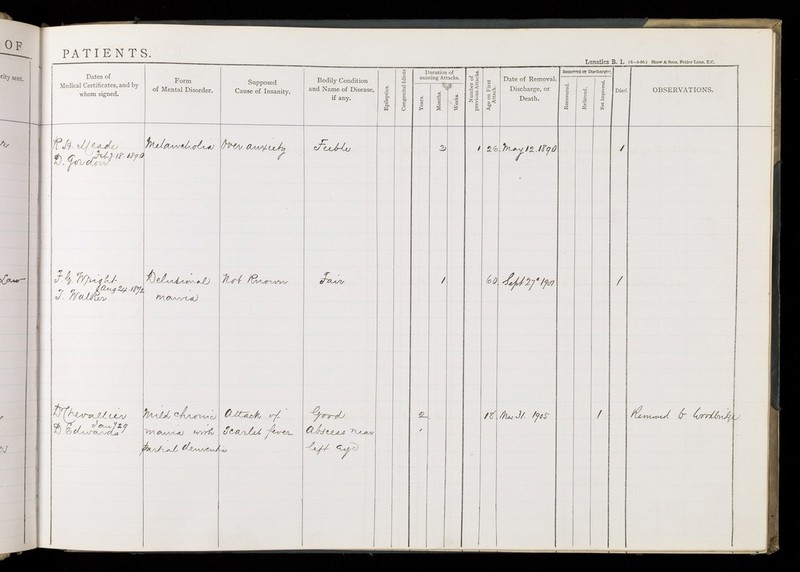 OF
PATIENTS.
Lunatics B. I.
Shaw & Sons, Fetter Lane, E.C.
rity sent.
Dates of
Medical Certificates, and by
whom signed.
Form
of Mental Disorder.
Supposed
Cause of Insanity.
Bodily Condition
and Name of Disease,
if any.
Epileptics.
Congenital Idiots
Duration of
existing Attacks.
Years.
Months.
Weeks.
Number of
previous Attacks.
Age on First
Attack.
Date of Removal,
Discharge, or
Death.
Removed or Discharged
Recovered.
Relieved.
Not Improved.
Died.
OBSERVATIONS.
R St. Meade Melancholia Over anxiety Feeble 3 1 26 May 12. 1890 1
Feb 18. 1890
D. Gordon
F. G. Wright Delusional Not Known Fair 1 60 Sept 27 1901 1
Aug 24. 1892
T. Walker mania
D Chevallier Mild chronic Attack of Good 2 18 31. 1905 1 Removed to Woodbridge
Jany 29
D Edwards mania with Scarlet fever Abscess near
partial dementia left eye